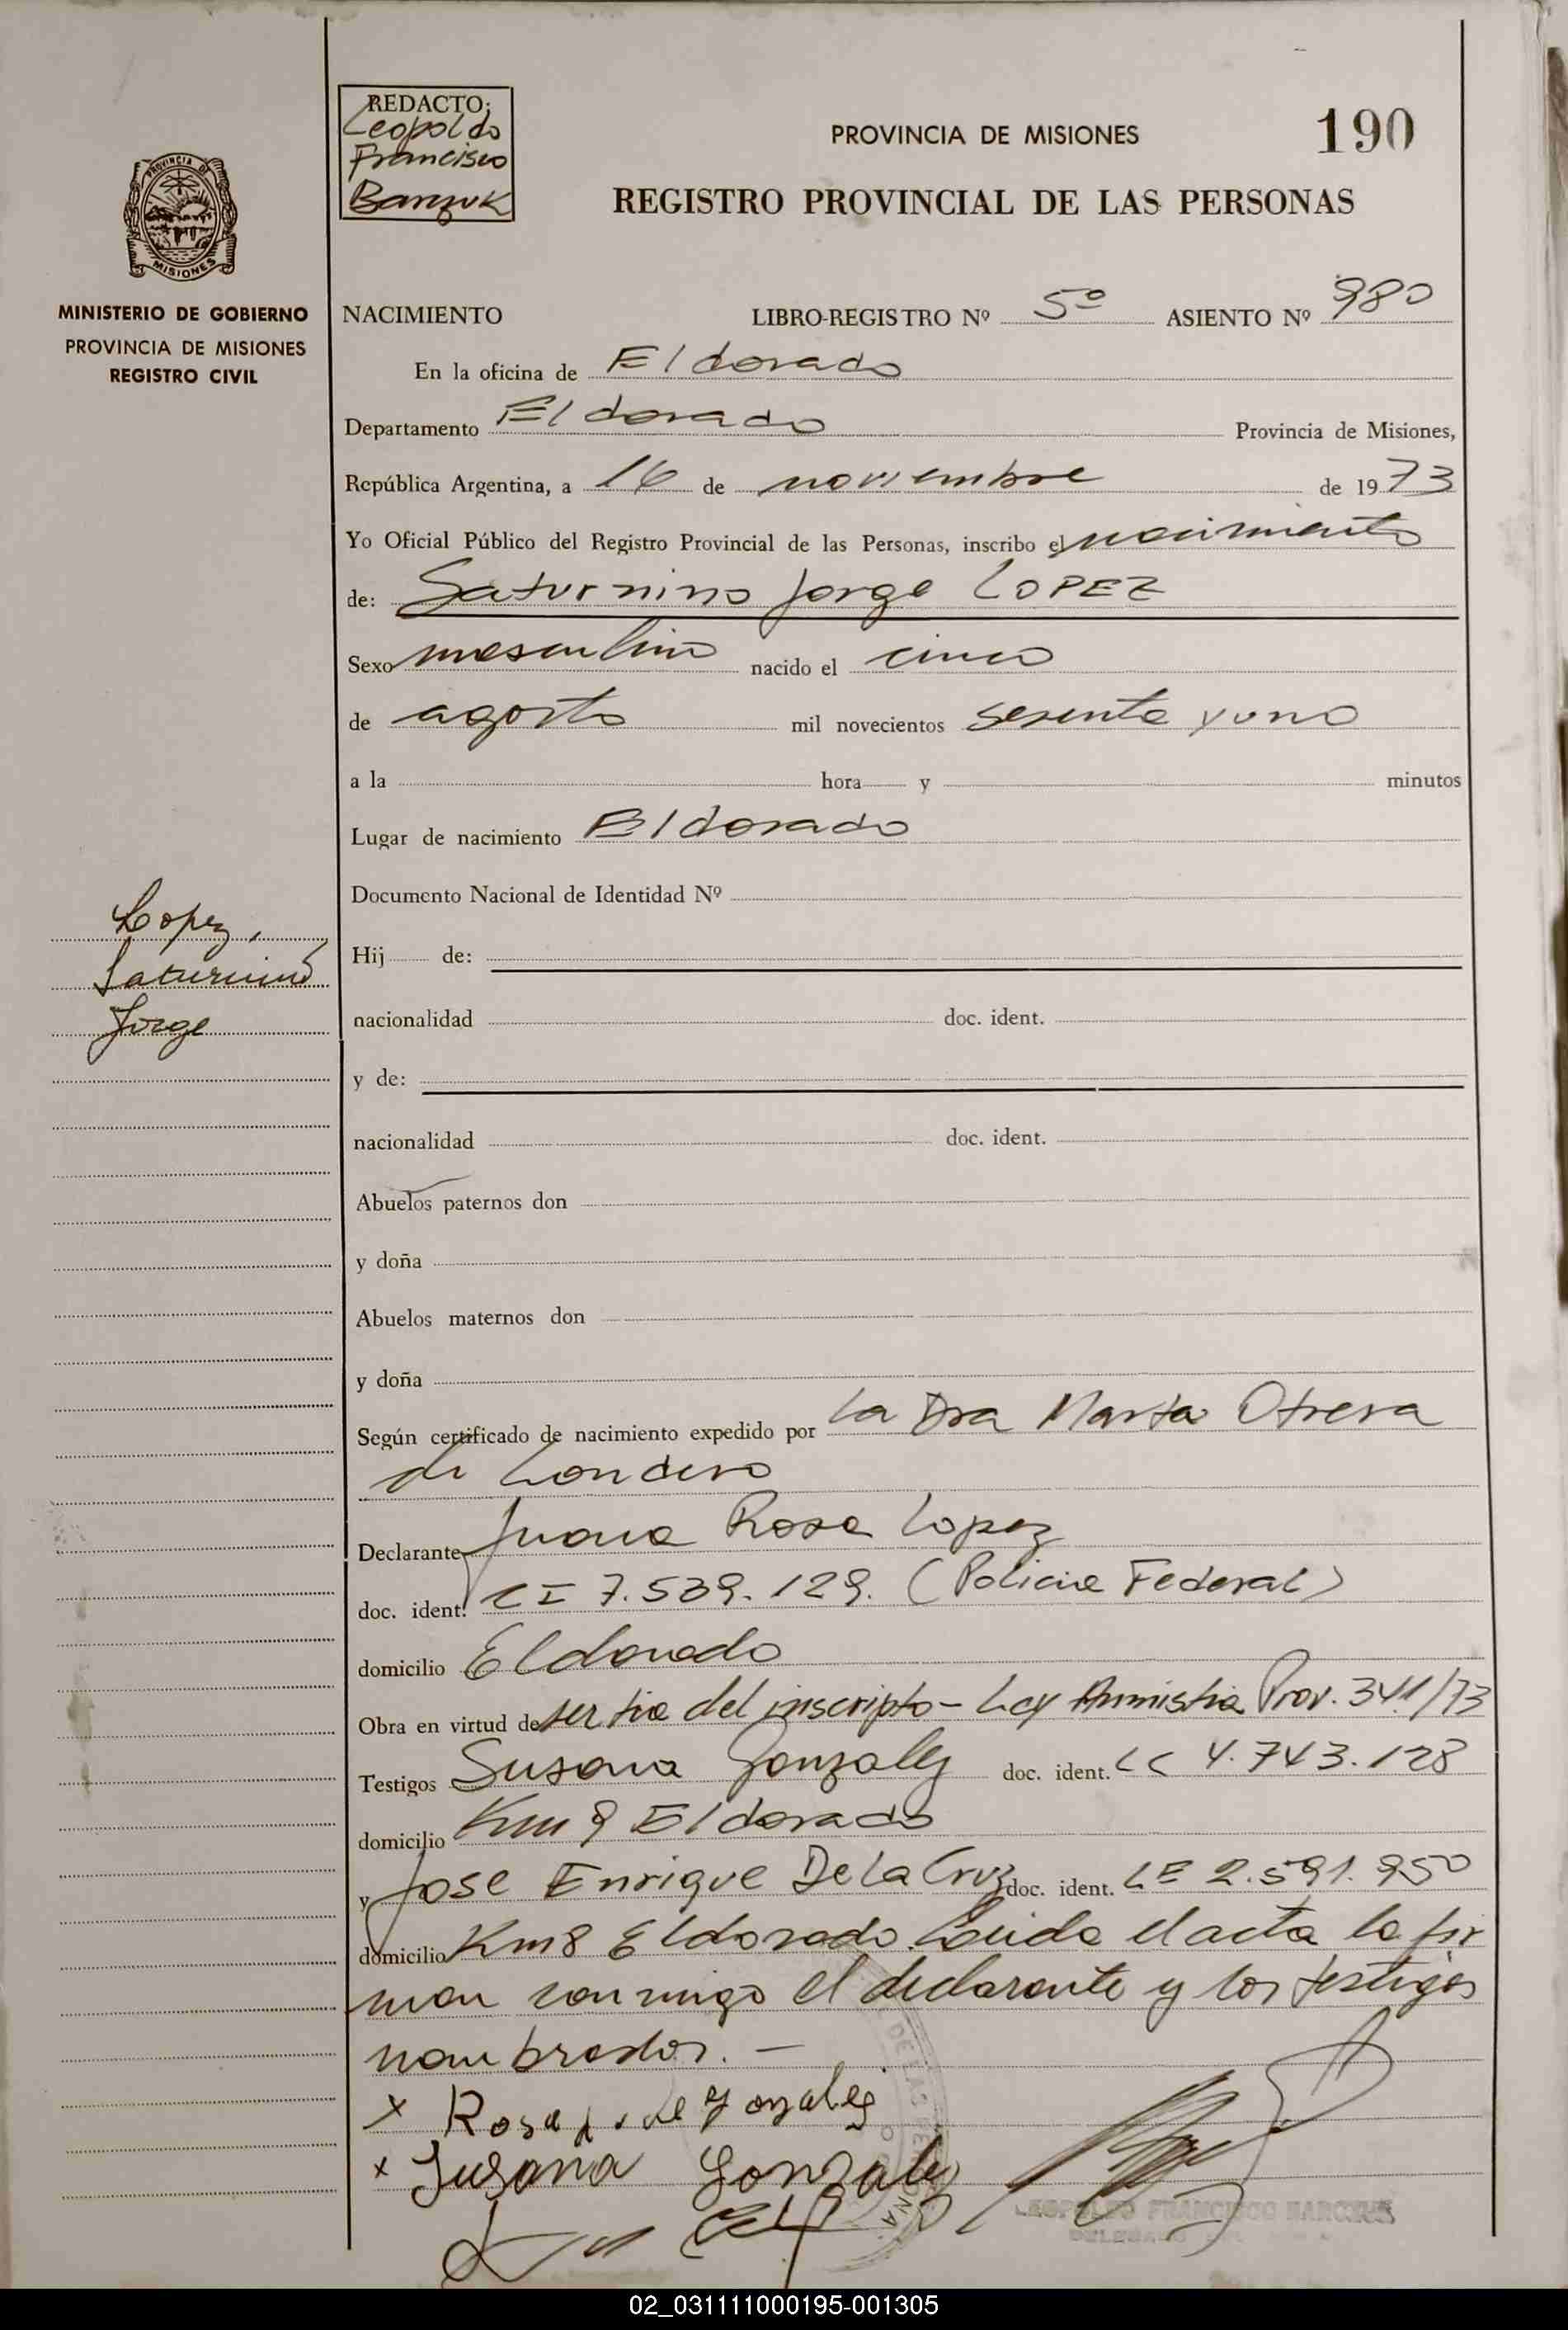 REDACTO:
Leopoldo
Francisco
Barczuk
PROVINCIA DE MISIONES
190
REGISTRO PROVINCIAL DE LAS PERSONAS
PROVINCIA DE
MISIONES
MINISTERIO DE GOBIERNO
PROVINCIA DE MISIONES
REGISTRO CIVIL
NACIMIENTO LIBRO-REGISTRO Nº 5º ASIENTO Nº 980
En la oficina de Eldorado
Departamento Eldorado Provincia de Misiones,
República Argentina, a 16 de noviembre de 1973
Yo Oficial Público del Registro Provincial de las Personas, inscribo el nacimiento
de: Saturnino Jorge LOPEZ
Sexo masculino nacido el cinco
de agosto mil novecientos sesenta y uno
a la hora y minutos
Lugar de nacimiento Eldorado
Documento Nacional de Identidad Nº
Lopez,
Saturnino
Jorge
Hij de:
nacionalidad doc. ident.
y de:
nacionalidad doc. ident.
Abuelos paternos don
y doña
Abuelos maternos don
y doña
Según certificado de nacimiento expedido por la Dra Marta Otrera
de Londero
Declarante Juana Rosa Lopez
doc. ident. CI 7.539.129. (Policia Federal)
domicilio Eldorado
Obra en virtud de ser tia del inscripto - Ley Amnistia Prov. 341/73
Testigos Susana Gonzalez doc. ident. LC 4.743.128
domicilio Km 9 Eldorado
y Jose Enrique De La Cruz doc. ident. LE 2.591.950
domicilio Km 8 Eldorado. Leida el acta la fir
man conmigo el declarante y los testigos
nombrados. -
x Rosa de Gonzalez
x Susana Gonzalez
LEOPOLDO FRANCISCO BARCZUK
02_031111000195-001305